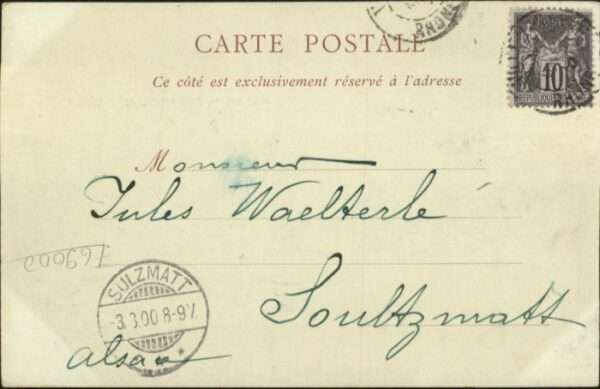 RHONE
CARTE POSTALE
Ce côté est exclusivement réservé à l'adresse
10
Monsieur
Jules Waelterlé
769002
SULZMATT
-3.3.00 8-9V.
Soultzmatt
alsace